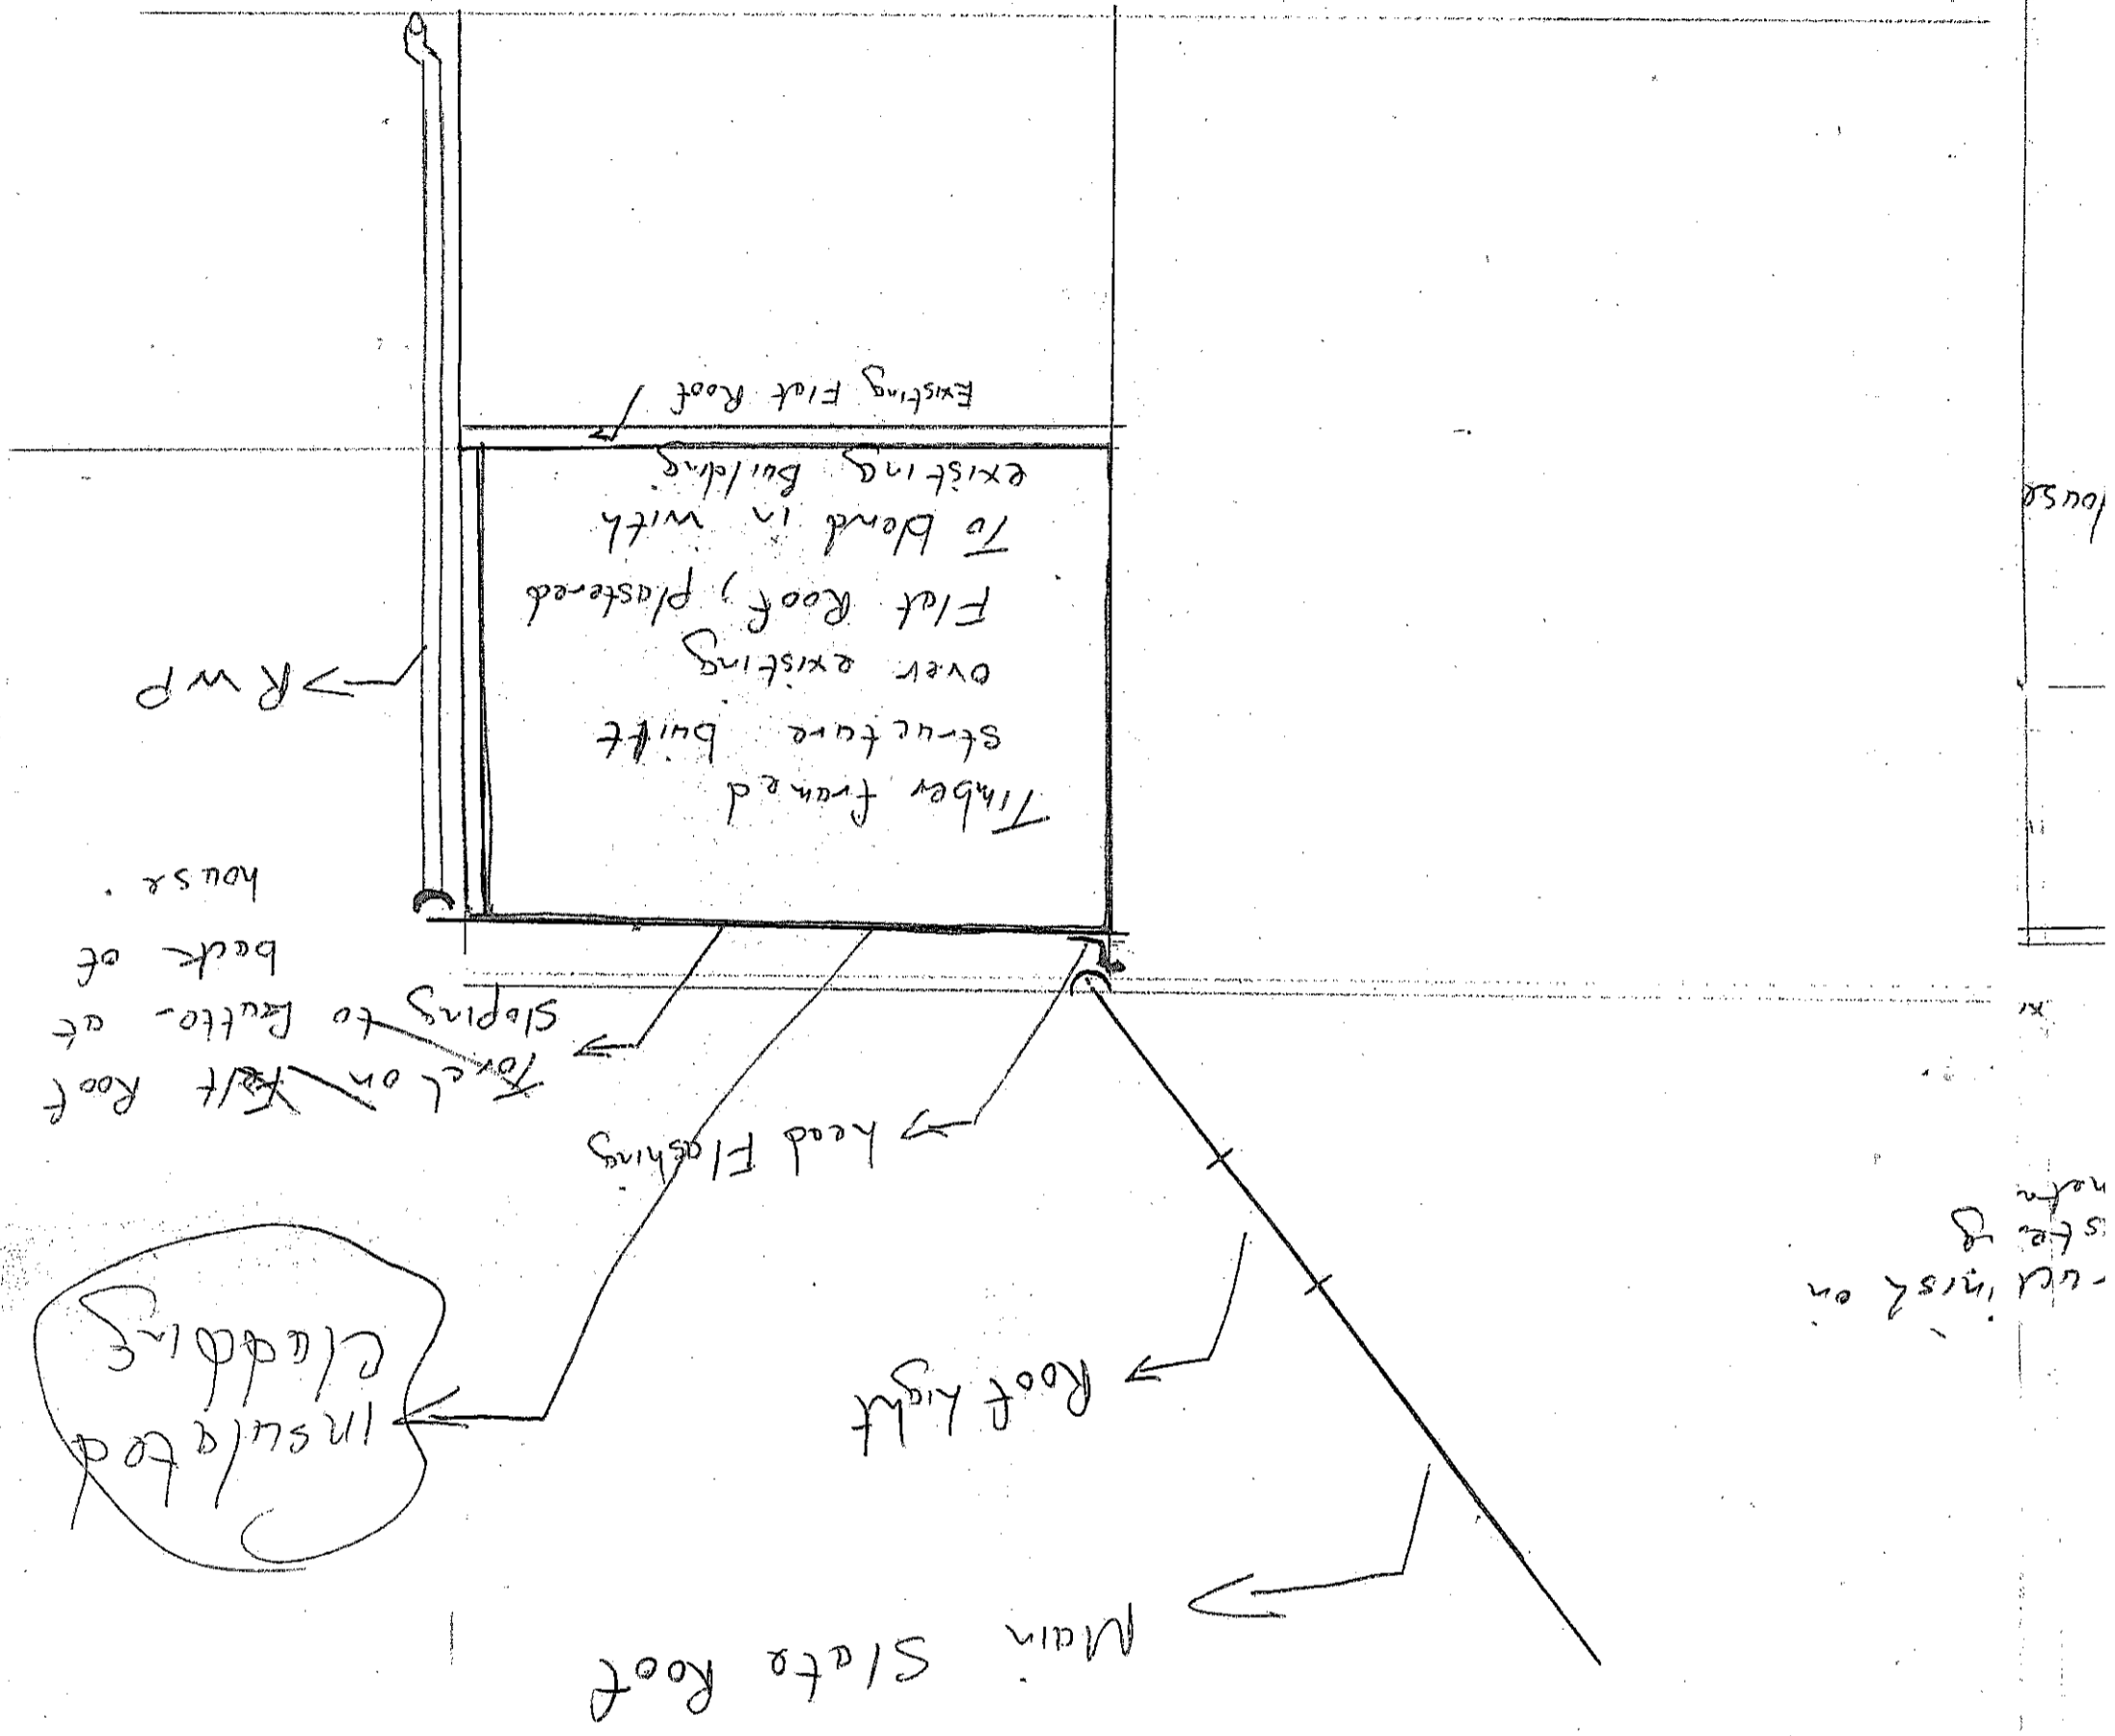 Main Slate Roof
Roof Light
Insulated
Cladding
Lead Flashing
Torch on Felt Roof
Sloping to Gutter at
back of
house.
Timber framed
structure built
over existing
Flat Roof, plastered
To blend in with
existing Building
Existing Flat Roof
RWP
house